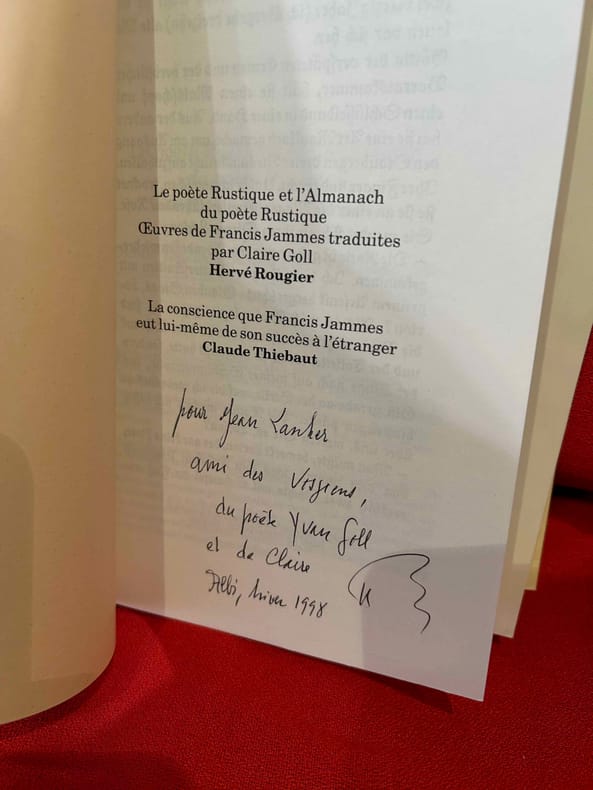 Le poète Rustique et l'Almanach
du poète Rustique
Œuvres de Francis Jammes traduites
par Claire Goll
Hervé Rougier
La conscience que Francis Jammes
eut lui-même de son succès à l'étranger
Claude Thiebaut
pour Jean
ami des
du poète Yvan Goll
et de Claire
Albi, hiver 1998